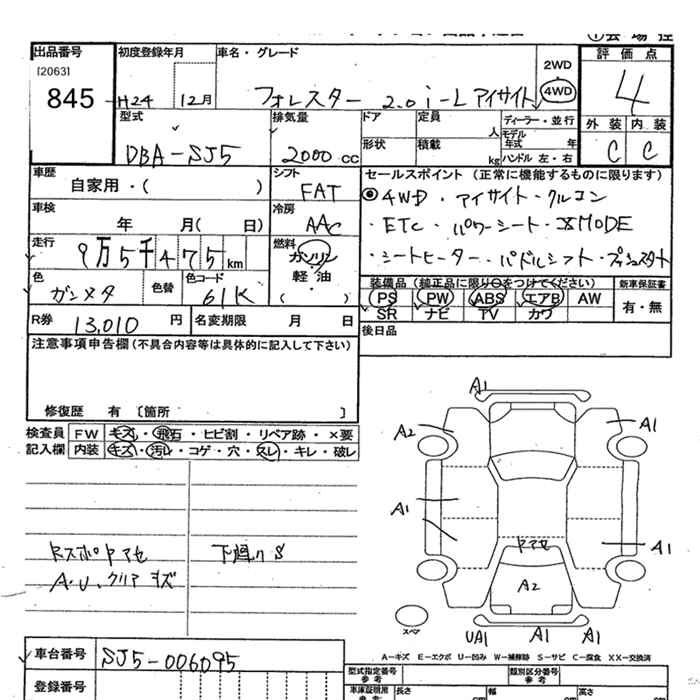 出品番号
[2063]
845
初度登録年月
H24 12月
車名・グレード
フォレスター 2.0i-L アイサイト
2WD
4WD
評価点
4
外装 内装
C C
型式
DBA-SJ5
排気量
2000 cc
ドア
定員 人
形状
積載 kg
ディーラー・並行
モデル
年式 年
ハンドル 左・右
車歴
自家用・( )
シフト
FAT
車検
年 月( 日)
冷房
AAC
走行
9万5千475km
燃料
ガソリン
軽・油
( )
色
ガンメタ
色替
色コード
61K
セールスポイント (正常に機能するものに限ります)
4WD・アイサイト・クルコン
・ETC・パワーシート・XMODE
・シートヒーター・パドルシフト・プッシュスタート
装備品 (純正品に限り○をつけてください)
PS PW ABS エアB AW
SR ナビ TV カワ
新車保証書
有・無
R券 13,010 円
名変期限 月 日
後日品
注意事項申告欄 (不具合内容等は具体的に記入して下さい)
修復歴 有 〔箇所 〕
検査員 FW キズ・飛石・ヒビ割・リペア跡・×要
記入欄 内装 キズ・汚レ・コゲ・穴・スレ・キレ・破レ
A1
A2 A1
A1
A1
ヤマセ
A2
スペア
UA1 A1 A1
ドスポトヤマセ 下廻りS
A・U、クリアキズ
A-キズ E-エクボ U-凹み W-補修跡 S-サビ C-腐食 XX-交換済
車台番号 SJ5-006095
登録番号
型式指定番号
参考
類別区分番号
参考
車庫証明用
参考
長さ cm
幅 cm
高さ cm